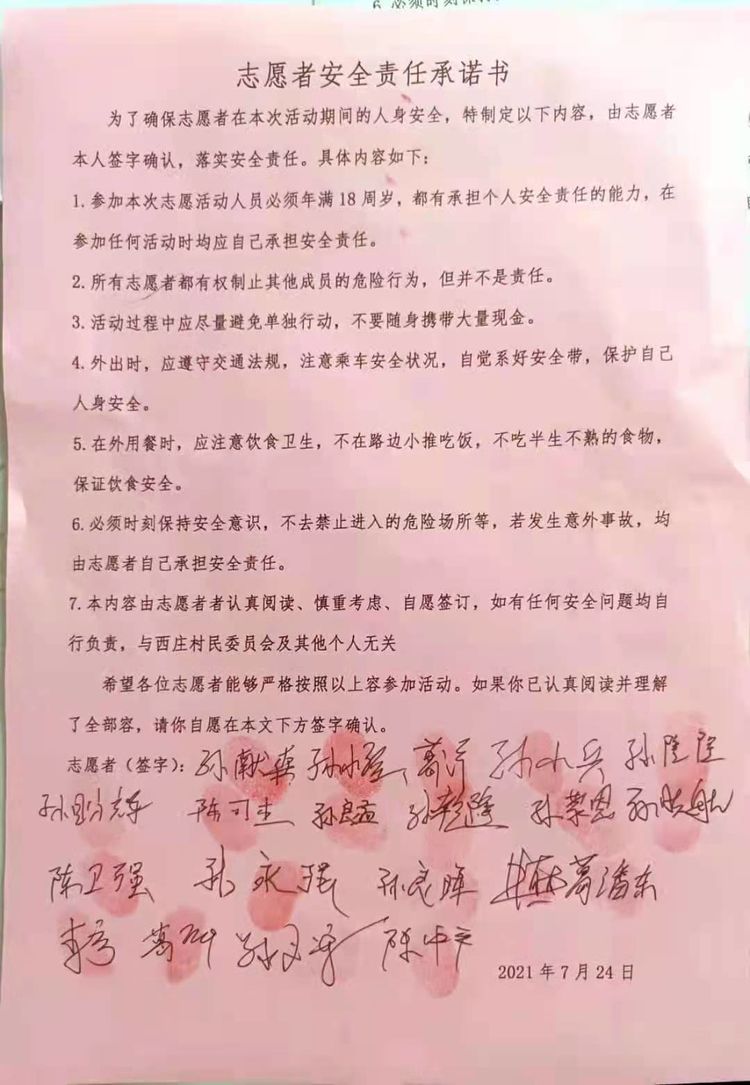 志愿者安全责任承诺书
为了确保志愿者在本次活动期间的人身安全，特制定以下内容，由志愿者
本人签字确认，落实安全责任。具体内容如下：
1.参加本次志愿活动人员必须年满18周岁，都有承担个人安全责任的能力，在
参加任何活动时均应自己承担安全责任。
2.所有志愿者都有权制止其他成员的危险行为，但并不是责任。
3.活动过程中应尽量避免单独行动，不要随身携带大量现金。
4.外出时，应遵守交通法规，注意乘车安全状况，自觉系好安全带，保护自己
人身安全。
5.在外用餐时，应注意饮食卫生，不在路边小推吃饭，不吃半生不熟的食物，
保证饮食安全。
6.必须时刻保持安全意识，不去禁止进入的危险场所等，若发生意外事故，均
由志愿者自己承担安全责任。
7.本内容由志愿者者认真阅读、慎重考虑、自愿签订，如有任何安全问题均自
行负责，与西庄村民委员会及其他个人无关
希望各位志愿者能够严格按照以上容参加活动。如果你已认真阅读并理解
了全部容，请你自愿在本文下方签字确认。
志愿者（签字）： 孙小兵 孙隆隆
陈可杰 孙良孟 孙荣恩
陈卫强 孙永强 孙良晖 葛潘东
2021年7月24日